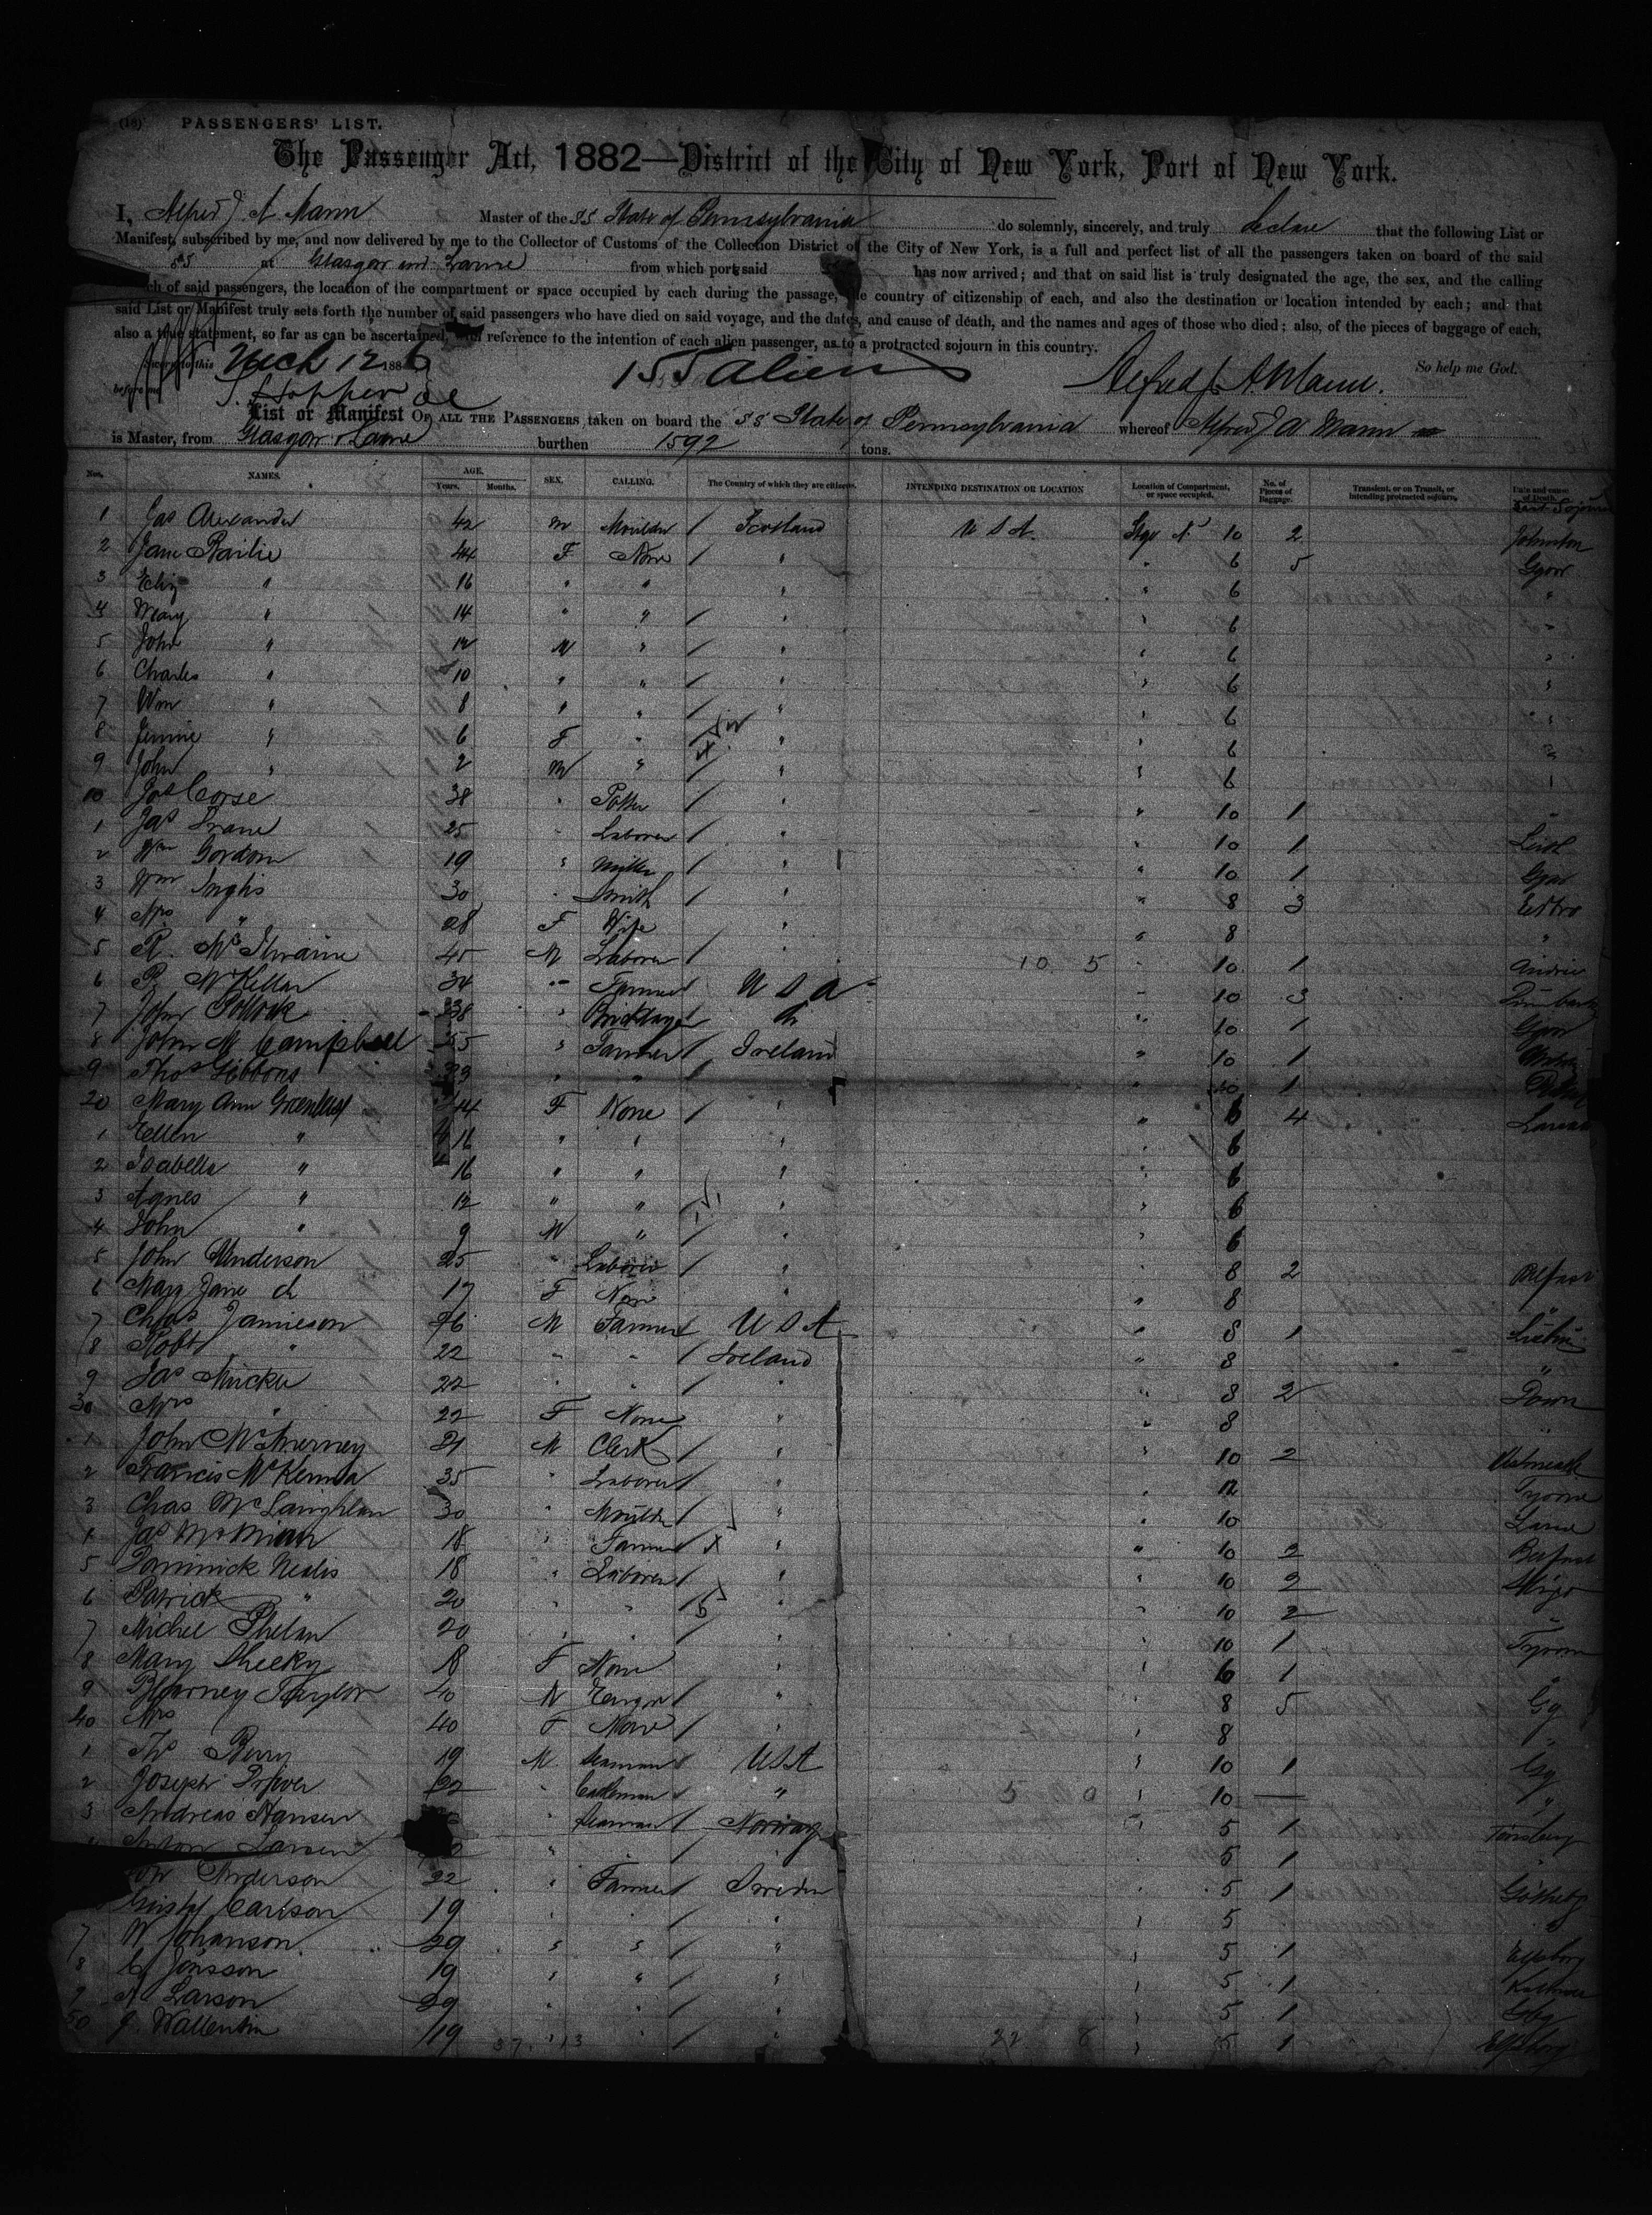 (18) PASSENGERS' LIST.
The Passenger Act, 1882—District of the City of New York, Port of New York.
I, Alfred J A Mann Master of the SS State of Pennsylvania do solemnly, sincerely, and truly declare that the following List or
Manifest, subscribed by me, and now delivered by me to the Collector of Customs of the Collection District of the City of New York, is a full and perfect list of all the passengers taken on board of the said
SS at Glasgow and Larne from which port said has now arrived; and that on said list is truly designated the age, the sex, and the calling
of said passengers, the location of the compartment or space occupied by each during the passage, the country of citizenship of each, and also the destination or location intended by each; and that
said List or Manifest truly sets forth the number of said passengers who have died on said voyage, and the dates, and cause of death, and the names and ages of those who died; also, of the pieces of baggage of each,
also a true statement, so far as can be ascertained, with reference to the intention of each alien passenger, as to a protracted sojourn in this country.
Sworn to this Mch 12 1886 155 aliens Alfred J. A. Mann. So help me God.
before me
List or Manifest OF ALL THE PASSENGERS taken on board the SS State of Pennsylvania whereof Alfred J A Mann
is Master, from Glasgow & Larne burthen 1592 tons.
Nos. NAMES. AGE. Years. Months. SEX. CALLING. The Country of which they are citizens. INTENDING DESTINATION OR LOCATION Location of Compartment, or space occupied. No. of Pieces of Baggage. Transient, or on Transit, or intending protracted sojourn. Date and cause of Death.
1 Jas Alexander 42 m Moulder Scotland U S A. Stge 10 2 Johnston
2 Jane Bailie 44 F None " " 6 5 Ggow
3 Eliz " 16 " " " " 6 "
4 Mary " 14 " " " " 6 "
5 John " 12 M " " " 6 "
6 Charles " 10 " " " " 6 "
7 Wm " 8 " " " " 6 "
8 Jennie " 6 F " " " 6 "
9 John " 2 m " " " 6 "
10 Jas Corse 38 " Potter " " 10 1 "
1 Jas 25 " Laborer " " 10 1
2 Wm Gordon 19 " " " 10 1 Ggow
3 Wm Inglis 30 " Smith " " 8 3 Edbro
4 Mrs " 28 F Wife " " 8 "
5 R. McIlwaine 45 M Laborer " 10 5 " 10 1 Airdrie
6 McKellar 34 " Farmer U S A " 10 3 Dumbarton
7 John Pollock 38 " Bricklayer " " 10 1 Ggow
8 John M Campbell " Farmer Ireland " 10 1
9 Thos Gibbons " " " " 10 1
20 Mary Ann 44 F None " " 6 4
1 Ellen " 18 " " " " 6
2 Isabella " 16 " " " " 6
3 Agnes " 12 " " " " 6
4 John " 9 M " " " 6
5 John Anderson 25 " Laborer " " 8 2 Belfast
6 Mary Jane do 17 F None " " 8 "
7 Chas Jamieson M Farmer U S A " 8 1
8 Robt " 22 " " Ireland " 8 "
9 Jas 22 " " " " 8 2 Down
30 Mrs " 22 F None " " 8 "
1 John McInerney 21 M Clerk " " 10 2
2 Francis McKenna 35 " Laborer " " 12 Tyrone
3 Chas McLaughlan 30 " Moulder " " 10 Larne
4 Jas 18 " Farmer " " 10 2 Belfast
5 Dominick Nealis 18 " Laborer " " 10 2 Sligo
6 Patrick " 20 " " " " 10 2 "
7 Michel Phelan 20 " " " " 10 1 Tyrone
8 Mary Sheeky 18 F None " " 6 1 "
9 Taylor 40 M " " 8 5 Gg
40 Mrs 40 F None " " 8 "
1 Ths Berry 19 M Seaman USA " 10 1
2 Joseph 22 " Cattleman " 5 0 " 10 — "
3 Andreas Hansen " Seaman Norway " 5 1 Tonsberg
Anton Larsen " " " " 5 1 "
Anderson 22 " Farmer Sweden " 5 1 Gotheby
Gustaf Carlson 19 " " " " 5 "
7 W Johanson 29 " " " " 5 1 Elfsborg
8 Jonsson 19 " " " " 5 1 Kalmar
9 A Larson 29 " " " " 5 1
50 J. Wallentin 19 37 13 " " " 22 8 " 5 1 Elfsborg